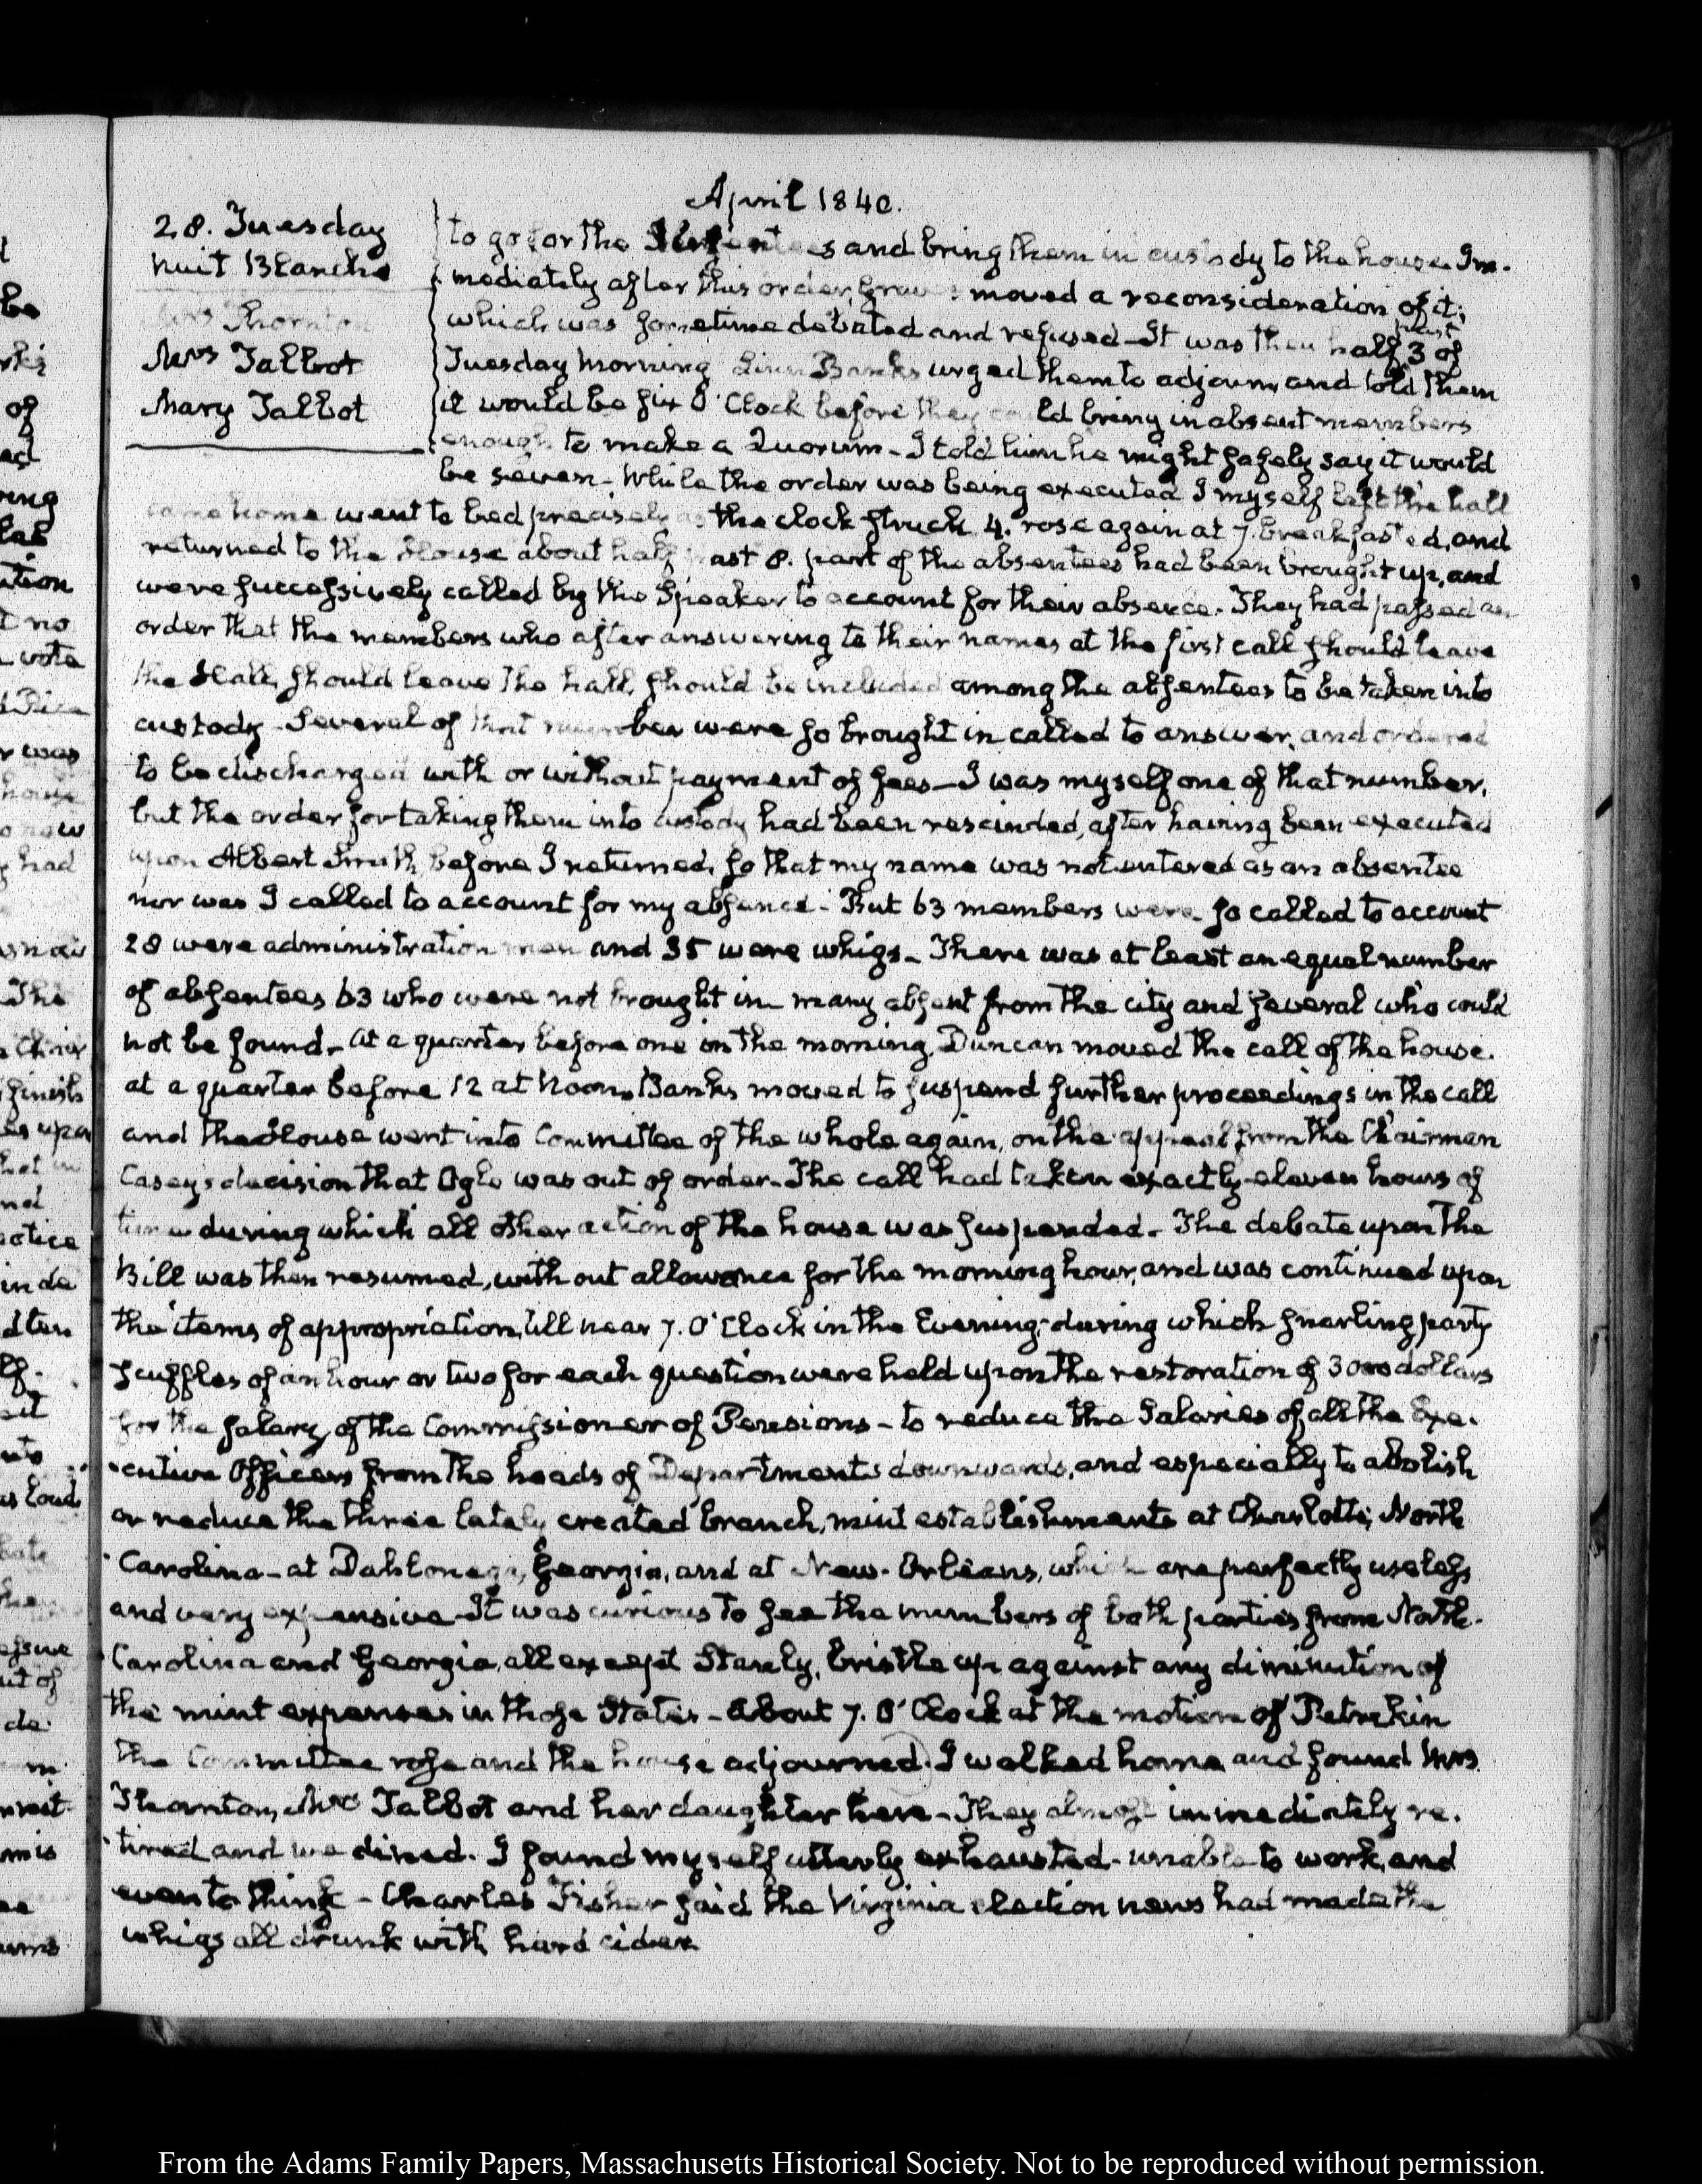 April 1840.
28. Tuesday
nuit Blanche
Mrs Thornton
Mrs Talbot
Mary Talbot
to go for the Absentees and bring them in custody to the house. Im-
mediately after this order, Graves moved a reconsideration of it;
which was sometime debated and refused—It was then half past 3 of
Tuesday Morning Linn Banks urged them to adjourn, and told them
it would be six O'Clock before they could bring in absent members
enough to make a Quorum—I told him he might safely say it would
be seven—While the order was being executed I myself left the hall
came home went to bed precisely as the clock struck 4. rose again at 7. breakfasted, and
returned to the House about half past 8. part of the absentees had been brought up, and
were successively called by the Speaker to account for their absence. They had passed an
order that the members who after answering to their names at the first call should leave
the Hall, should leave the hall, should be included among the absentees to be taken into
custody—Several of that number were so brought in called to answer, and ordered
to be discharged with or without payment of fees—I was myself one of that number,
but the order for taking them into custody had been rescinded, after having been executed
upon Albert Smith, before I returned, so that my name was not entered as an absentee
nor was I called to account for my absence—But 63 members were so called to account
28 were administration men and 35 were whigs—There was at least an equal number
of absentees 63 who were not brought in many absent from the city and several who could
not be found—At a quarter before one in the morning, Duncan moved the call of the house.
at a quarter before 12 at Noon, Banks moved to suspend further proceedings in the call
and the House went into Committee of the whole again, on the appeal from the Chairman
Casey's decision that Ogle was out of order—The call had taken exactly eleven hours of
time during which all other action of the house was suspended—The debate upon the
Bill was then resumed, without allowance for the morning hour, and was continued upon
the items of appropriation, till near 7. O'Clock in the Evening; during which snarling party
scuffles of an hour or two for each question were held upon the restoration of 3000 dollars
for the salary of the Commissioner of Pensions—to reduce the Salaries of all the Exe-
cutive Officers from the heads of Departments downwards, and especially to abolish
or reduce the three lately created branch, mint establishments at Charlotte, North
Carolina—at Dahlonega, Georgia, and at New-Orleans, which are perfectly useless
and very expensive—It was curious to see the members of both parties from North-
Carolina and Georgia, all except Stanly, bristle up against any diminution of
the mint expenses in those States—About 7. O'Clock at the motion of Petrikin
the Committee rose and the house adjourned. I walked home and found Mrs
Thornton, Mrs Talbot and her daughter here—They almost immediately re-
tired and we dined. I found myself utterly exhausted—unable to work, and
even to think—Charles Fisher said the Virginia election news had made the
whigs all drunk with hard cider
From the Adams Family Papers, Massachusetts Historical Society. Not to be reproduced without permission.